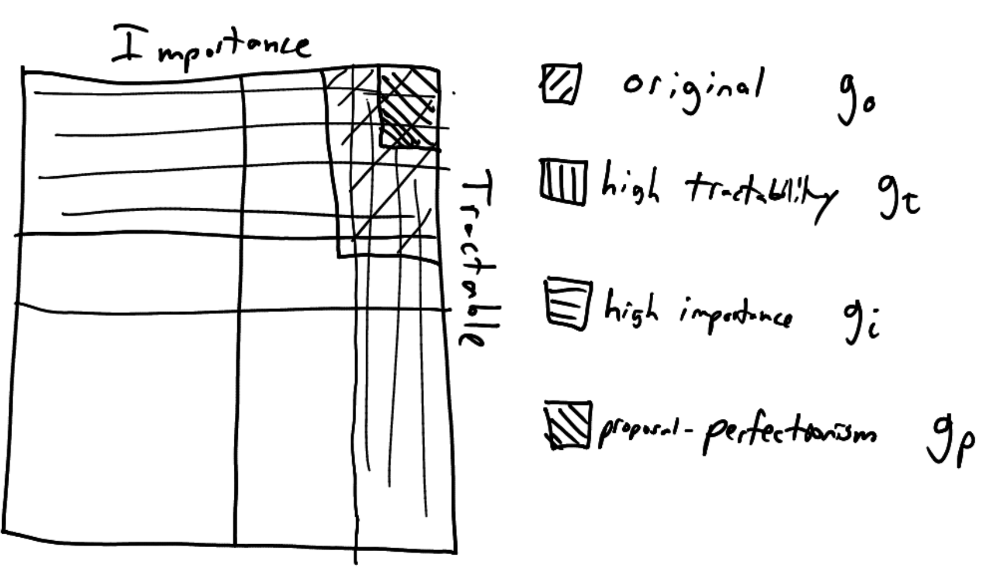 Importance
Tractable
original g₀
high tractability gₜ
high importance gᵢ
proposal-perfectionism gₚ